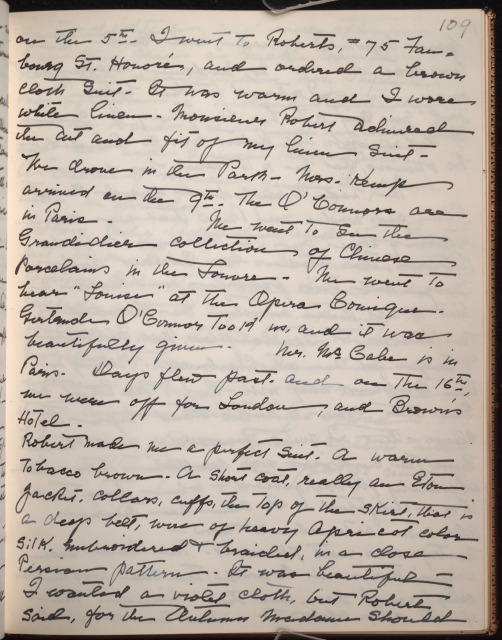 109
on the 5th- I went to Roberts, #75 Fau-
bourg St. Honoré, and ordered a brown
cloth Suit- It was warm and I wore
white linen- Monsieur Robert admired
the cut and fit of my linen Suit-
We drove in the Park- Mrs. Kemp
arrived on the 9th. The O'Connors are
in Paris- We went to See the
Grandidier collection of Chinese
Porcelains in the Louvre- We went to
hear "Louise" at the Opera Comique-
Gertrude O'Connor took us, and it was
beautifully given- Mrs. McCabe is in
Paris- Days flew past- and on the 16th,
we were off for London, and Browns
Hotel-
Robert made me a perfect Suit- A warm
Tobacco brown- A Short coat, really an Eton
Jacket, collars, cuffs, the top of the Skirt, that is
a deep belt, were of heavy Apricot color
Silk, embroidered & braided, in a close
Persian pattern- It was beautiful-
I wanted a violet cloth, but Robert
Said, for the Autumn Madame Should